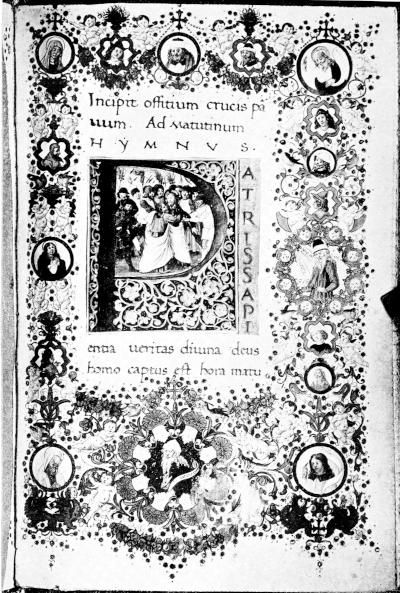 Incipit offitium crucis pa
uum. Ad Matutinum
HYMNUS.
PATRISSAPI
entia veritas divina deus
homo captus est hora matu